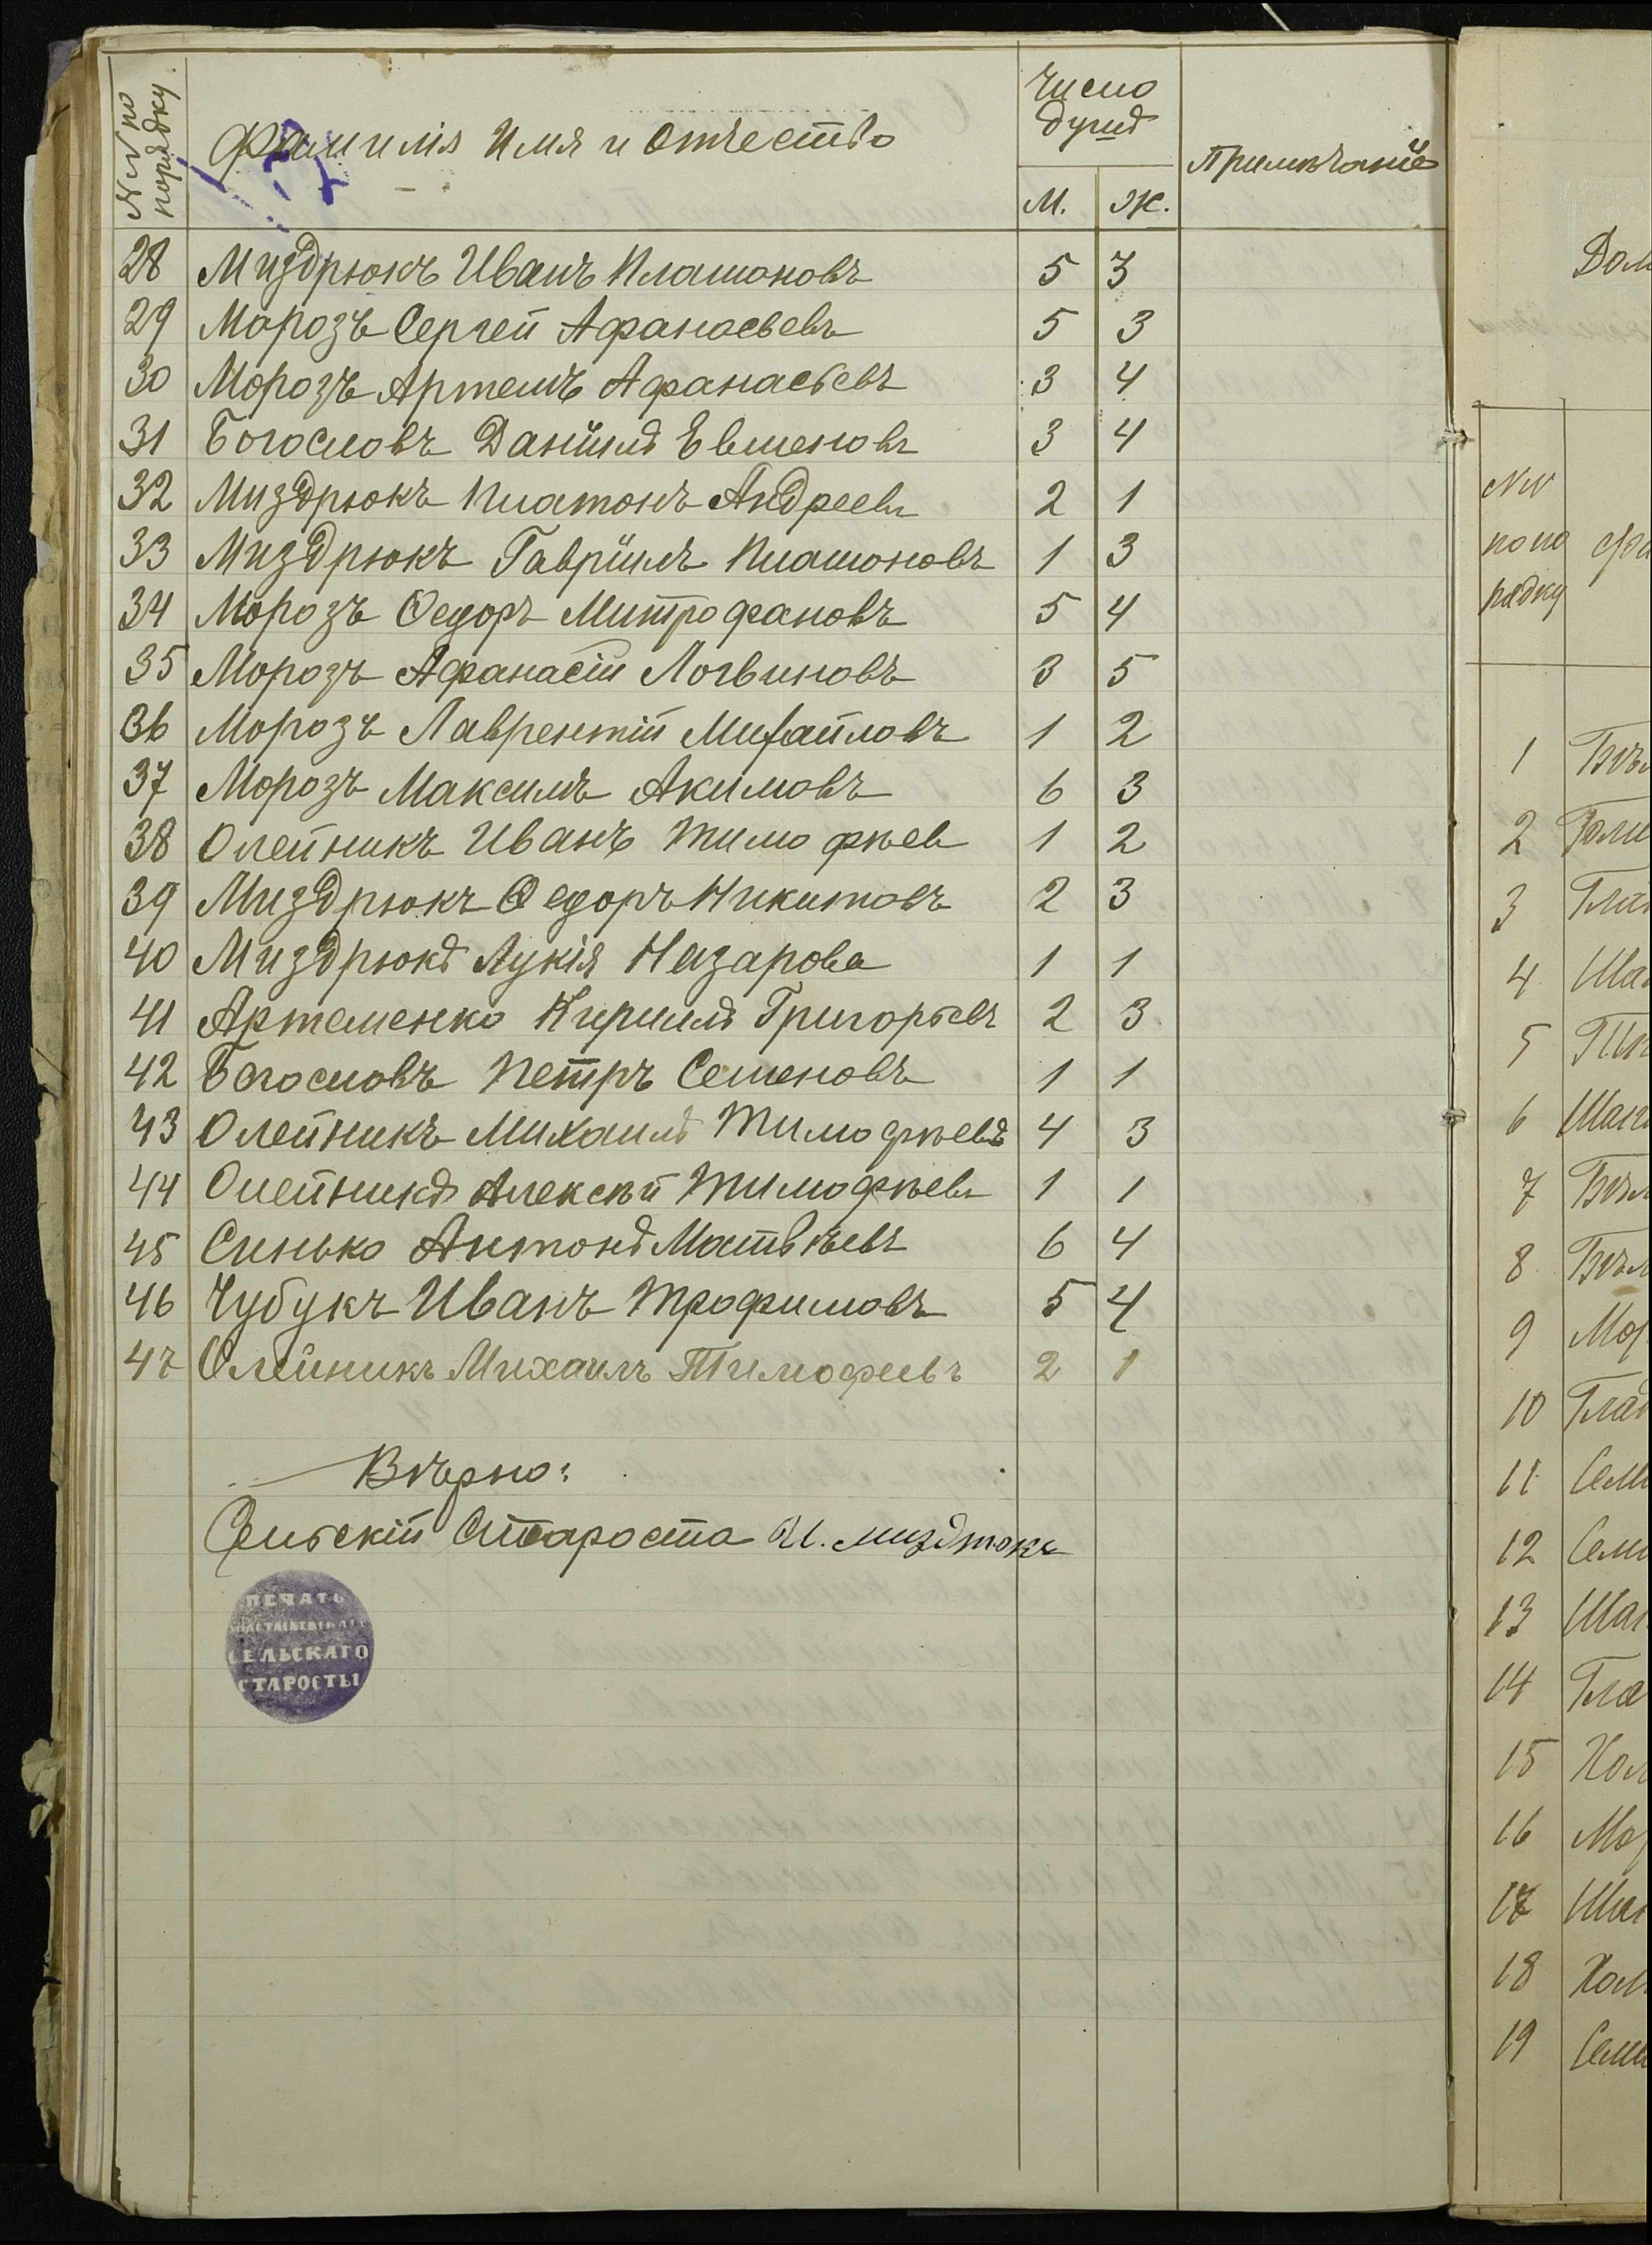 №№ по порядку
Фамилія Имя и Отчество
Число
душъ
Примѣчаніе
М. Ж.
28 Миздрюкъ Иванъ Платоновъ 5 3
29 Морозъ Сергей Афанасьевъ 5 3
30 Морозъ Артемъ Афанасьевъ 3 4
31 Богословъ Даніилъ Евменовъ 3 4
32 Миздрюкъ Платонъ Андреевъ 2 1
33 Миздрюкъ Гавріилъ Платоновъ 1 3
34 Морозъ Ѳедоръ Митрофановъ 5 4
35 Морозъ Афанасій Логвиновъ 3 5
36 Морозъ Лаврентій Михайловъ 1 2
37 Морозъ Максимъ Акимовъ 6 3
38 Олейникъ Иванъ Тимофѣев 1 2
39 Миздрюкъ Ѳедоръ Никитовъ 2 3
40 Миздрюкъ Лукія Назарова 1 1
41 Артеменко Кирилъ Григорьевъ 2 3
42 Богословъ Петръ Семеновъ 1 1
43 Олейникъ Михаилъ Тимофѣевъ 4 3
44 Олейникъ Алексѣй Тимофѣевъ 1 1
45 Синько Антонъ Матвѣевъ 6 4
46 Чубукъ Иванъ Трофимовъ 5 4
47 Олейникъ Михаилъ Тимофеевъ 2 1
Вѣрно:
Сельскій Староста И. Миздрюкъ
ПЕЧАТЬ
СЕЛЬСКАГО
СТАРОСТЫ
№№
по по
рядку
1
2
3
4
5
6
7
8
9
10
11
12
13
14
15
16
17
18
19